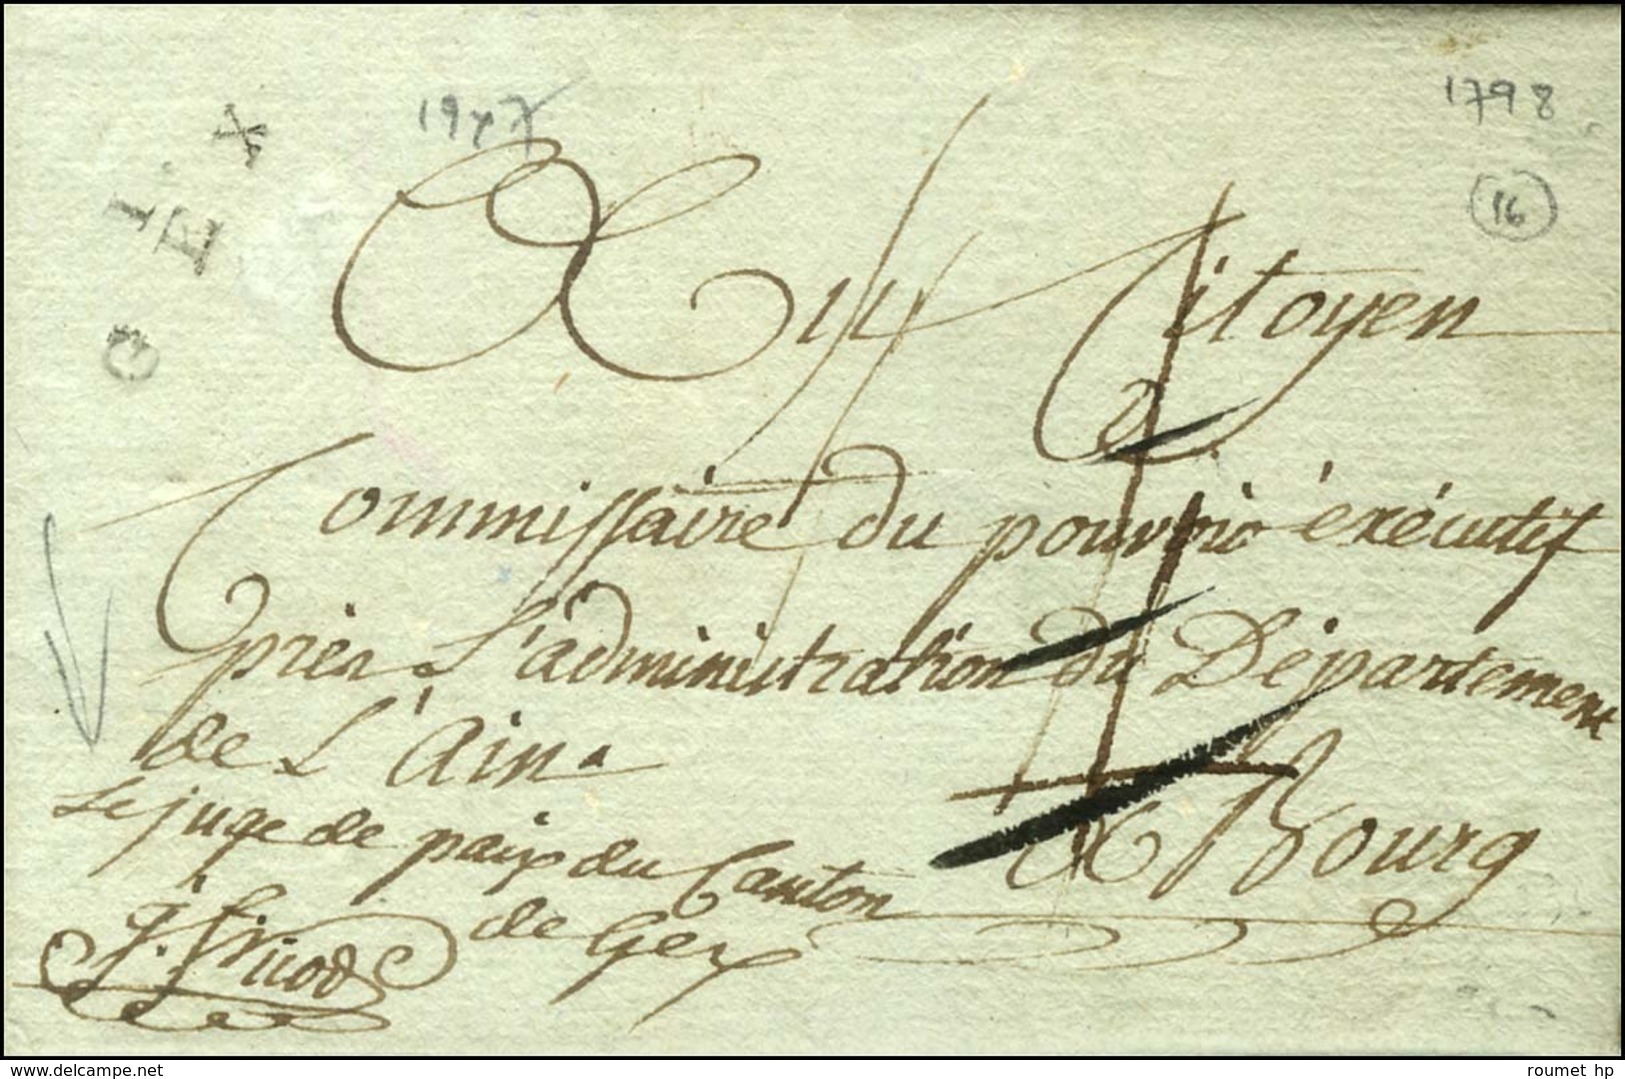 1798
16
I.
GEX
Au Citoyen
Commissaire du pouvoir éxécutif
près L'administration du Département
de L'Ain.
à Bourg
Le juge de paix du Canton
de Gex
roumet hp